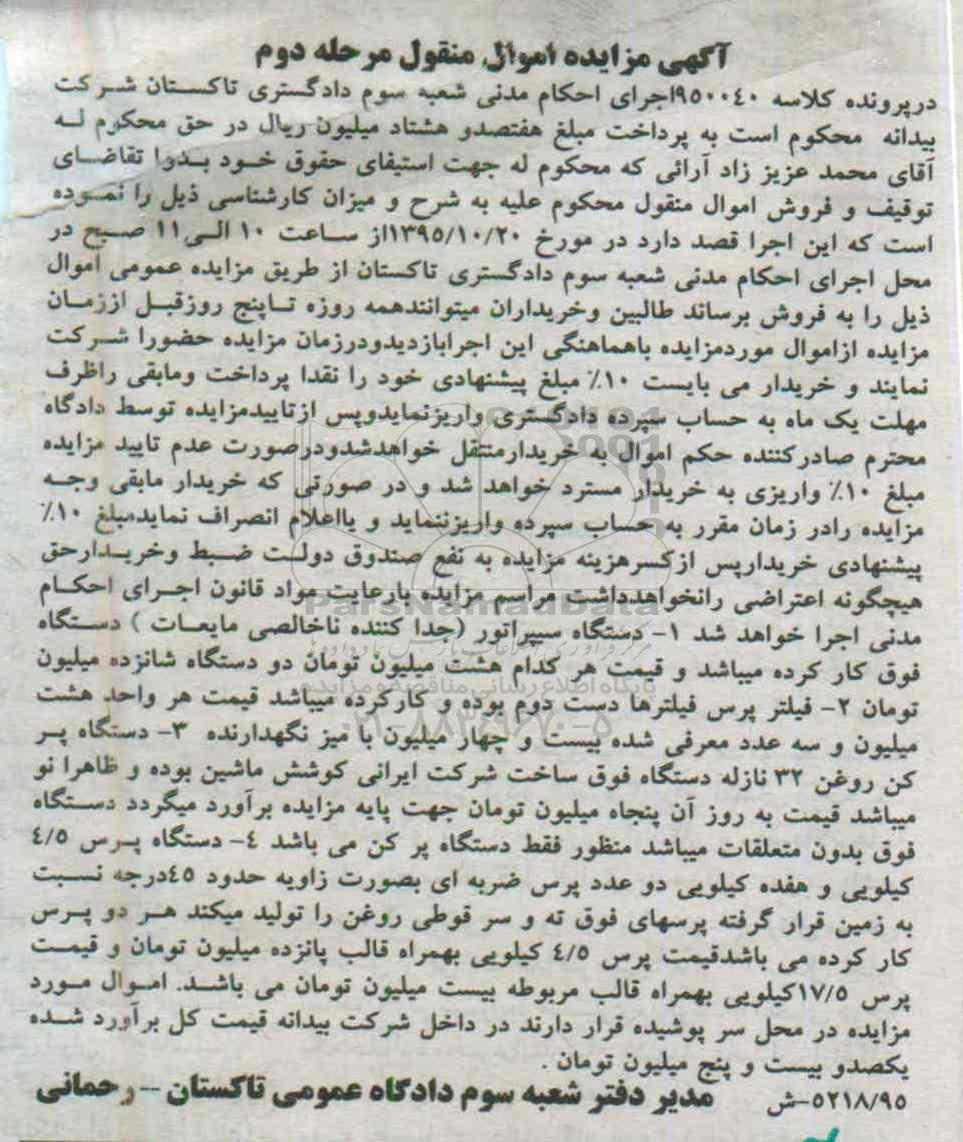 آگهی مزایده اموال منقول مرحله دوم
درپرونده کلاسه ۹۵۰۰٤۰اجرای احکام مدنی شعبه سوم دادگستری تاکستان شرکت
بیدانه محکوم است به پرداخت مبلغ هفتصدو هشتاد میلیون ریال در حق محکوم له
آقای محمد عزیز زاد آرائی که محکوم له جهت استیفای حقوق خود بدوا تقاضای
توقیف و فروش اموال منقول محکوم علیه به شرح و میزان کارشناسی ذیل را نموده
است که این اجرا قصد دارد در مورخ ۱۳۹۵/۱۰/۲۰از ساعت ۱۰ الی۱۱ صبح در
محل اجرای احکام مدنی شعبه سوم دادگستری تاکستان از طریق مزایده عمومی اموال
ذیل را به فروش برساند طالبین وخریداران میتوانندهمه روزه تاپنج روزقبل اززمان
مزایده ازاموال موردمزایده باهماهنگی این اجرابازدیدودرزمان مزایده حضورا شرکت
نمایند و خریدار می بایست ۱۰٪ مبلغ پیشنهادی خود را نقدا پرداخت ومابقی راظرف
مهلت یک ماه به حساب سپرده دادگستری واریزنمایدوپس ازتاییدمزایده توسط دادگاه
محترم صادرکننده حکم اموال به خریدارمنتقل خواهدشدودرصورت عدم تایید مزایده
مبلغ ۱۰٪ واریزی به خریدار مسترد خواهد شد و در صورتی که خریدار مابقی وجه
مزایده رادر زمان مقرر به حساب سپرده واریزننماید و یااعلام انصراف نمایدمبلغ ۱۰٪
پیشنهادی خریدارپس ازکسرهزینه مزایده به نفع صندوق دولت ضبط وخریدارحق
هیچگونه اعتراضی رانخواهدداشت مراسم مزایده بارعایت مواد قانون اجرای احکام
مدنی اجرا خواهد شد ۱- دستگاه سپراتور (جدا کننده ناخالصی مایعات ) دستگاه
فوق کار کرده میباشد و قیمت هر کدام هشت میلیون تومان دو دستگاه شانزده میلیون
تومان ۲- فیلتر پرس فیلترها دست دوم بوده و کارکرده میباشد قیمت هر واحد هشت
میلیون و سه عدد معرفی شده بیست و چهار میلیون با میز نگهدارنده ۳- دستگاه پر
کن روغن ۳۲ نازله دستگاه فوق ساخت شرکت ایرانی کوشش ماشین بوده و ظاهرا نو
میباشد قیمت به روز آن پنجاه میلیون تومان جهت پایه مزایده برآورد میگردد دستگاه
فوق بدون متعلقات میباشد منظور فقط دستگاه پر کن می باشد ٤- دستگاه پرس ٤/۵
کیلویی و هفده کیلویی دو عدد پرس ضربه ای بصورت زاویه حدود ٤۵درجه نسبت
به زمین قرار گرفته پرسهای فوق ته و سر قوطی روغن را تولید میکند هر دو پرس
کار کرده می باشدقیمت پرس ٤/۵ کیلویی بهمراه قالب پانزده میلیون تومان و قیمت
پرس ۱۷/۵کیلویی بهمراه قالب مربوطه بیست میلیون تومان می باشد. اموال مورد
مزایده در محل سر پوشیده قرار دارند در داخل شرکت بیدانه قیمت کل برآورد شده
یکصدو بیست و پنج میلیون تومان .
۵۲۱۸/۹۵-ش مدیر دفتر شعبه سوم دادگاه عمومی تاکستان - رحمانی
ParsNamadData
پایگاه اطلاع رسانی مناقصه و مزایده
۰۲۱-۸۸۳٤۹۶۷۰-۵